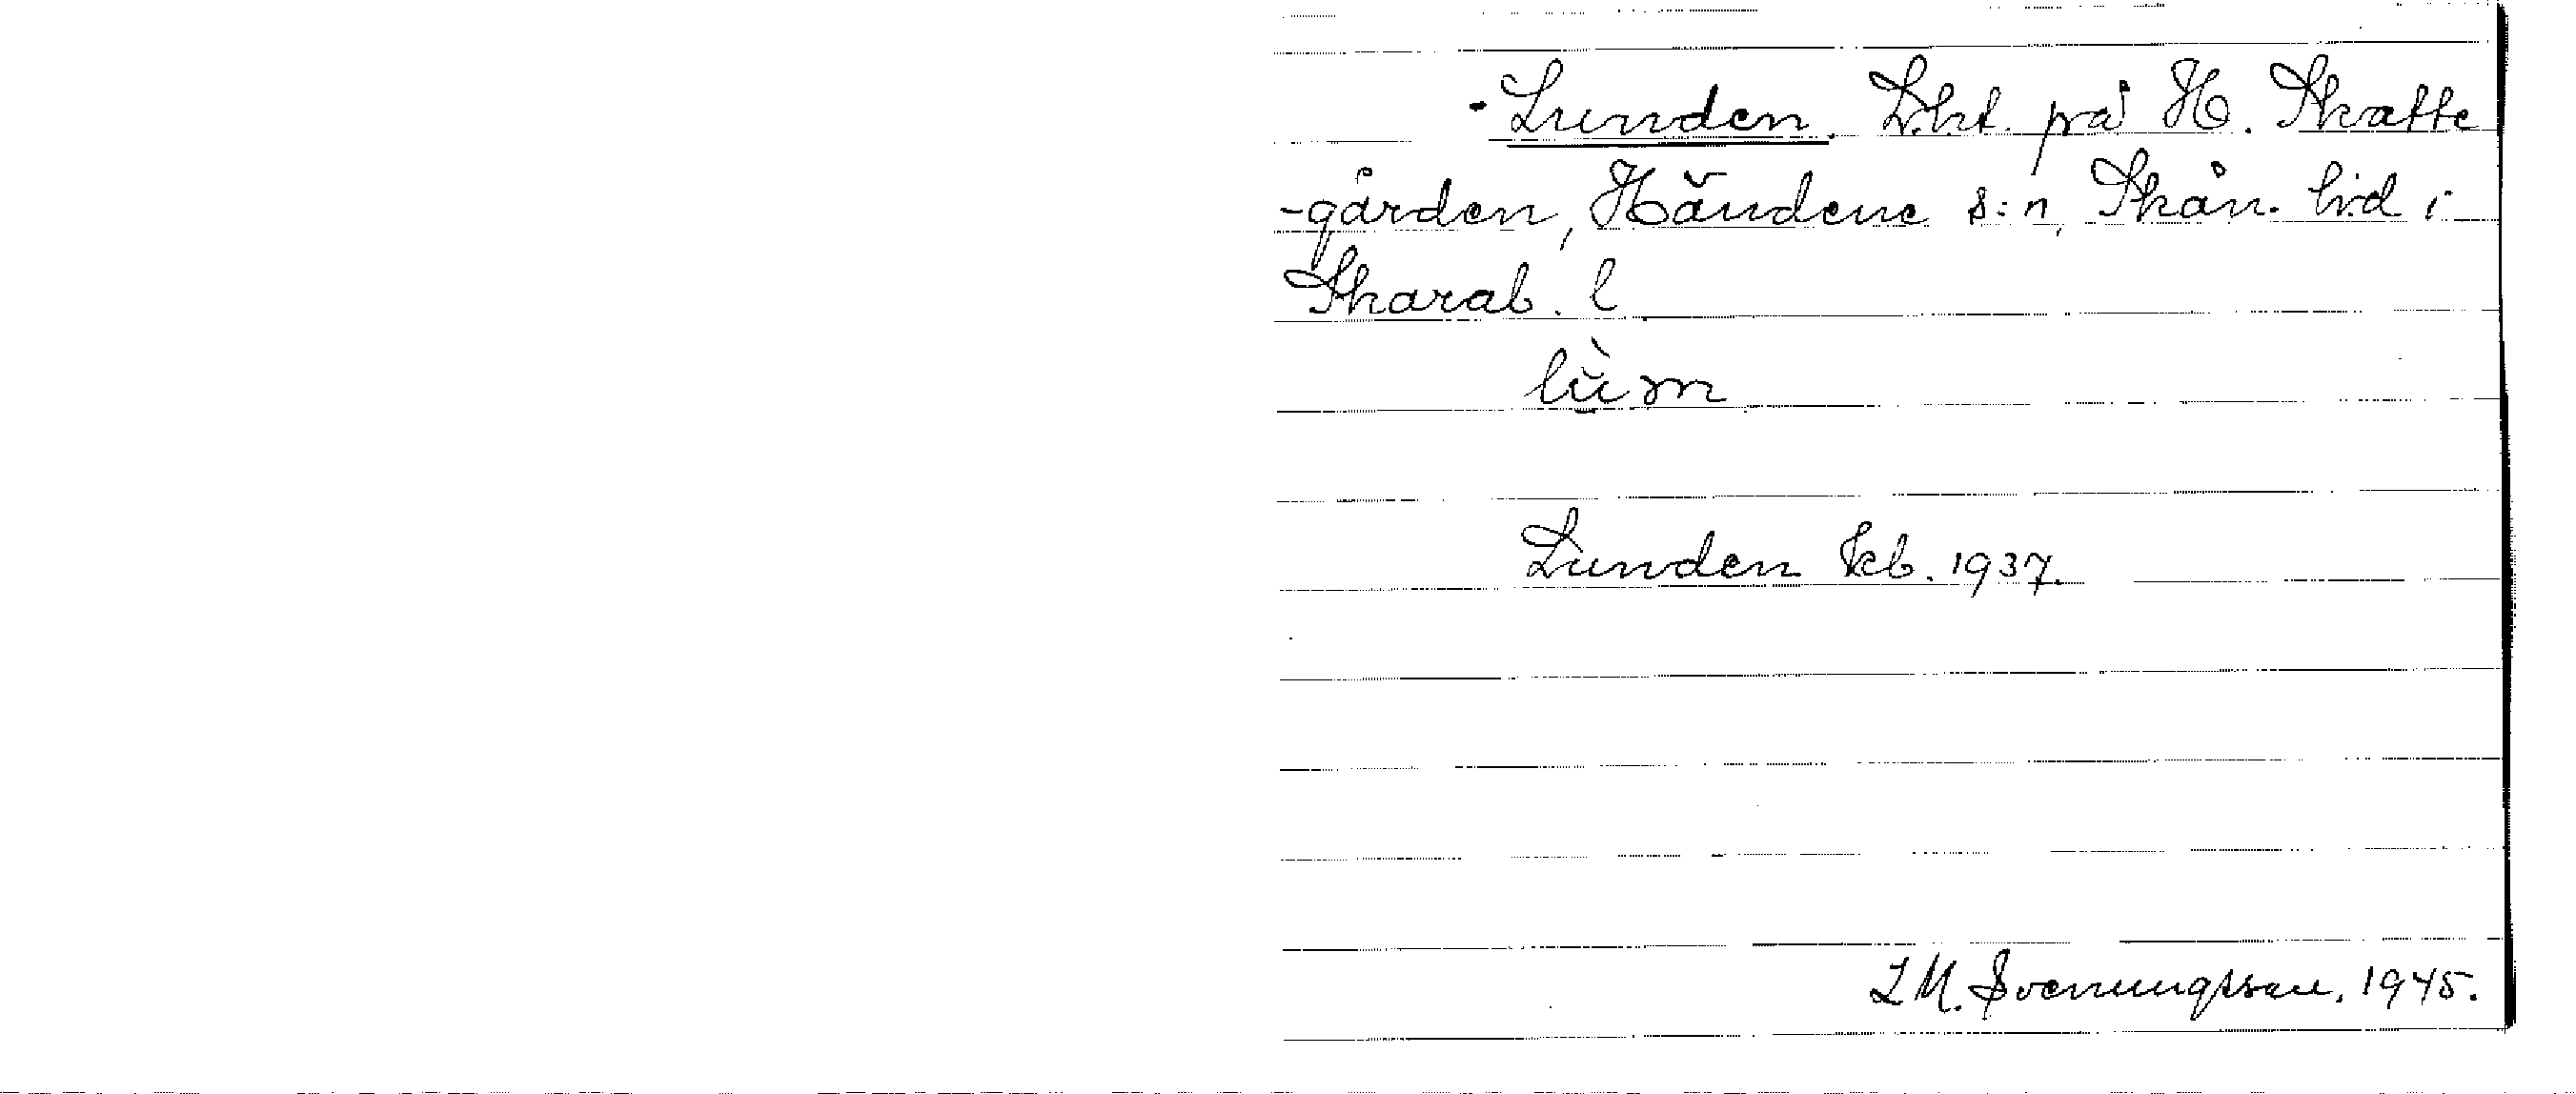 Lunden. Lht. på H. Skatte
-gården, Håndene s:n, Skån. hd i
Skarab. l
Lunden kb. 1937.
S.M. Svenungsson, 1945.